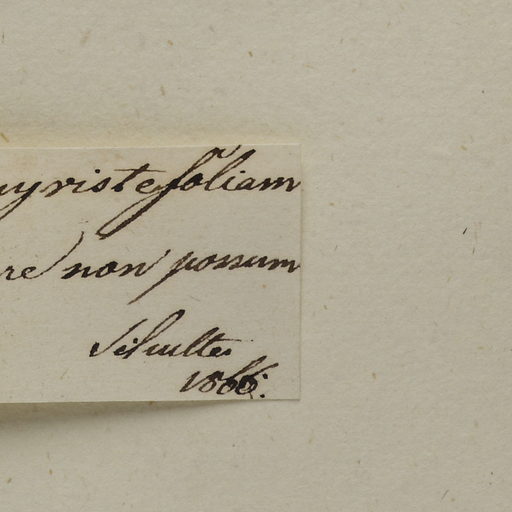 uyristefoliam
re non possum
Schultes
1866.